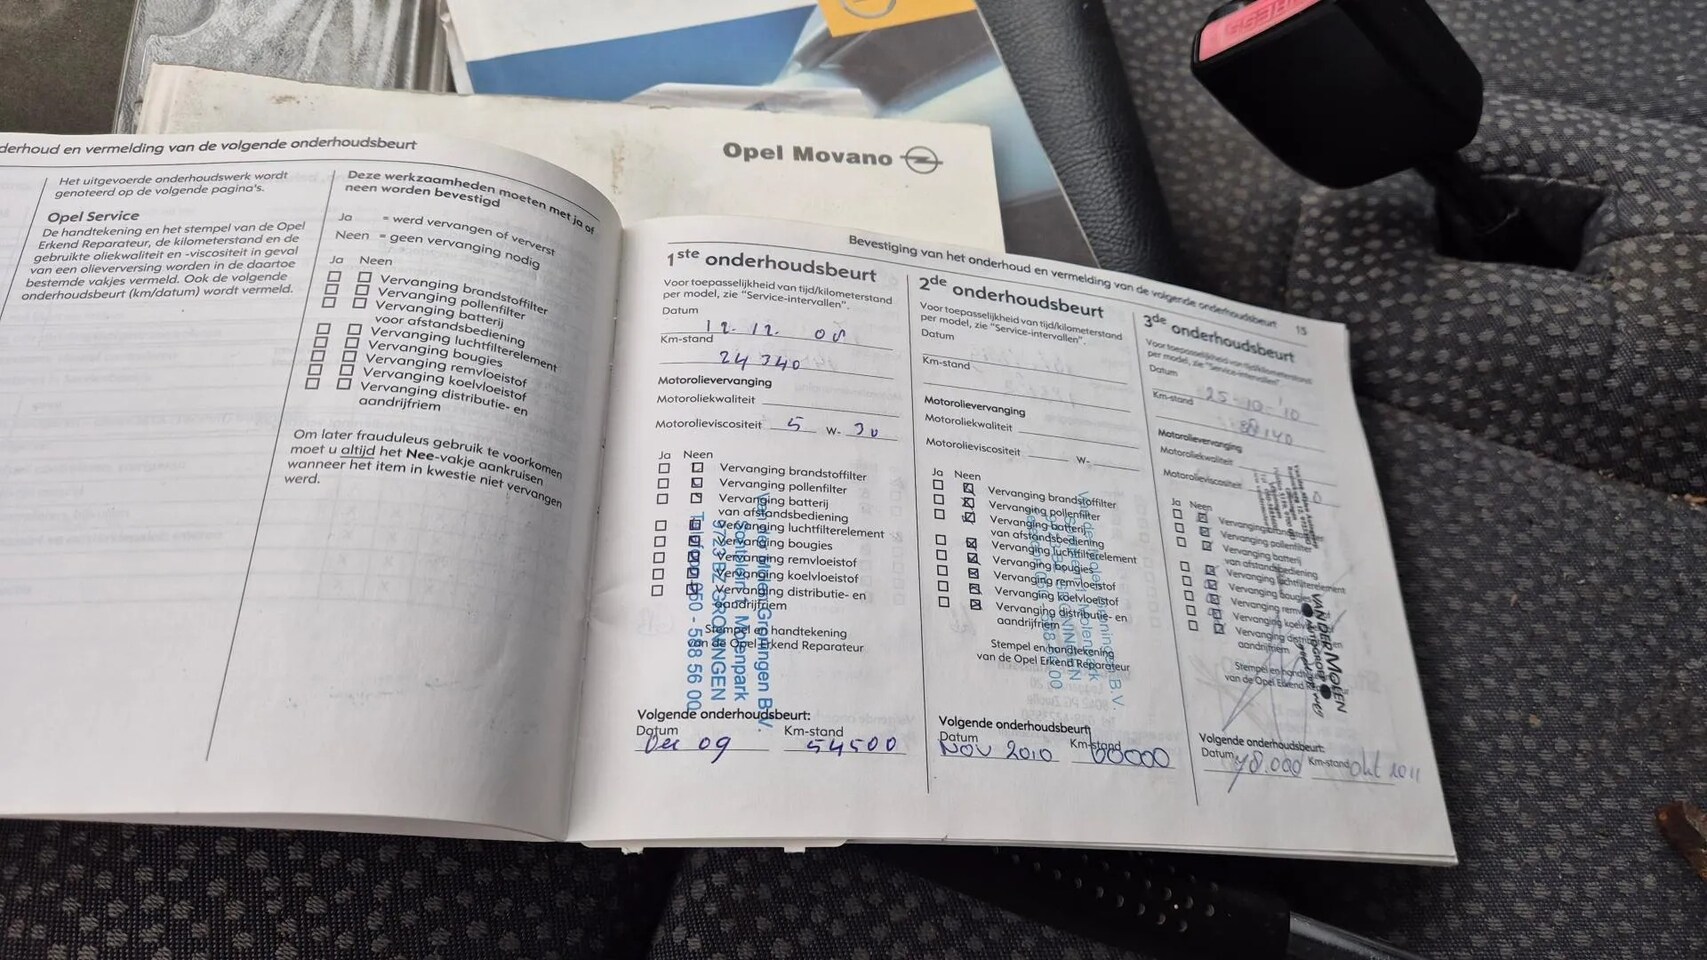 Opel Movano
derhoud en vermelding van de volgende onderhoudsbeurt
Het uitgevoerde onderhoudswerk wordt
genoteerd op de volgende pagina's.
Opel Service
De handtekening en het stempel van de Opel
Erkend Reparateur, de kilometerstand en de
gebruikte oliekwaliteit en -viscositeit in geval
van een olieverversing worden in de daartoe
bestemde vakjes vermeld. Ook de volgende
onderhoudsbeurt (km/datum) wordt vermeld.
Deze werkzaamheden moeten met ja of
neen worden bevestigd
Ja = werd vervangen of ververst
Neen = geen vervanging nodig
Ja Neen
Vervanging brandstoffilter
Vervanging pollenfilter
Vervanging batterij
voor afstandsbediening
Vervanging luchtfilterelement
Vervanging bougies
Vervanging remvloeistof
Vervanging koelvloeistof
Vervanging distributie- en
aandrijfriem
Om later frauduleus gebruik te voorkomen
moet u altijd het Nee-vakje aankruisen
wanneer het item in kwestie niet vervangen
werd.
Bevestiging van het onderhoud en vermelding van de volgende onderhoudsbeurt 15
1ste onderhoudsbeurt
Voor toepasselijkheid van tijd/kilometerstand
per model, zie "Service-intervallen".
Datum
12-12-08
Km-stand
24340
Motorolievervanging
Motoroliekwaliteit
Motorolieviscositeit 5 W- 30
Ja Neen
Vervanging brandstoffilter
Vervanging pollenfilter
Vervanging batterij
van afstandsbediening
Vervanging luchtfilterelement
Vervanging bougies
Vervanging remvloeistof
Vervanging koelvloeistof
Vervanging distributie- en
aandrijfriem
Stempel en handtekening
van de Opel Erkend Reparateur
Groningen B.V.
Molenpark
9723 BZ GRONINGEN
050 - 588 56 00
Volgende onderhoudsbeurt:
Datum Km-stand
Dec 09 54500
2de onderhoudsbeurt
Voor toepasselijkheid van tijd/kilometerstand
per model, zie "Service-intervallen".
Datum
Km-stand
Motorolievervanging
Motoroliekwaliteit
Motorolieviscositeit W-
Ja Neen
Vervanging brandstoffilter
Vervanging pollenfilter
Vervanging batterij
van afstandsbediening
Vervanging luchtfilterelement
Vervanging bougies
Vervanging remvloeistof
Vervanging koelvloeistof
Vervanging distributie- en
aandrijfriem
Stempel en handtekening
van de Opel Erkend Reparateur
Volgende onderhoudsbeurt
Datum Km-stand
Nov 2010 60000
3de onderhoudsbeurt
Voor toepasselijkheid van tijd/kilometerstand
per model, zie "Service-intervallen".
Datum
25-10-'10
Km-stand
Motorolievervanging
Motoroliekwaliteit
Motorolieviscositeit
Ja Neen
Vervanging brandstoffilter
Vervanging pollenfilter
Vervanging batterij
van afstandsbediening
Vervanging luchtfilterelement
Vervanging bougies
Vervanging
Vervanging
Vervanging
aandrijfriem
Stempel en
van de Opel Erkend
VAN DER MOLEN
Volgende onderhoudsbeurt:
Datum Km-stand
48.000 Okt 2011